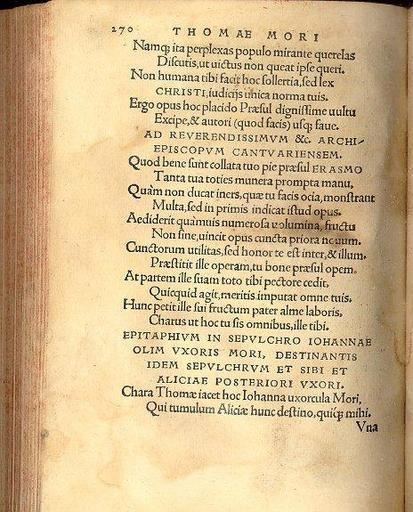 270 THOMAE MORI
Namq; ita perplexas populo mirante querelas
Discutis, ut uictus non queat ipse queri.
Non humana tibi facit hoc sollertia, sed lex
CHRISTI, iudicijs unica norma tuis.
Ergo opus hoc placido Præsul dignissime uultu
Excipe, & autori (quod facis) usq; faue.
AD REVERENDISSIMVM &c. ARCHI-
EPISCOPVM CANTVARIENSEM.
Quod bene sunt collata tuo pie præsul ERASMO
Tanta tua toties munera prompta manu,
Quàm non ducat iners, quæ tu facis ocia, monstrant
Multa, sed in primis indicat istud opus.
Aediderit quàmuis numerosa uolumina, fructu
Non sine, uincit opus cuncta priora nouum.
Cunctorum utilitas, sed honor te est inter, & illum.
Præstitit ille operam, tu bone præsul opem.
At partem ille suam toto tibi pectore cedit,
Quicquid agit, meritis imputat omne tuis.
Hunc petit ille sui fructum pater alme laboris,
Charus ut hoc tu sis omnibus, ille tibi.
EPITAPHIVM IN SEPVLCHRO IOHANNAE
OLIM VXORIS MORI, DESTINANTIS
IDEM SEPVLCHRVM ET SIBI ET
ALICIAE POSTERIORI VXORI.
Chara Thomæ iacet hoc Iohanna uxorcula Mori,
Qui tumulum Aliciæ hunc destino, quiq; mihi.
Vna